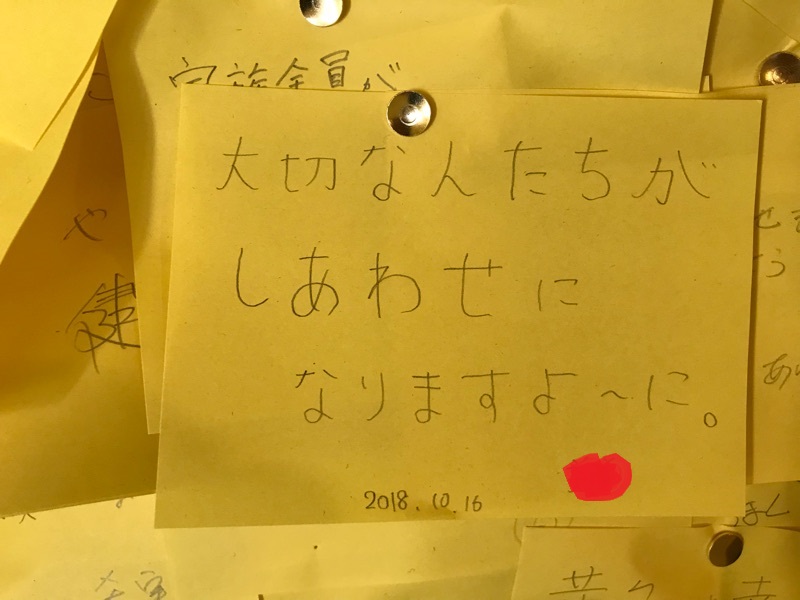 家族全員が
大切なんたちが
しあわせに
なりますよ〜に。
2018.10.16
や